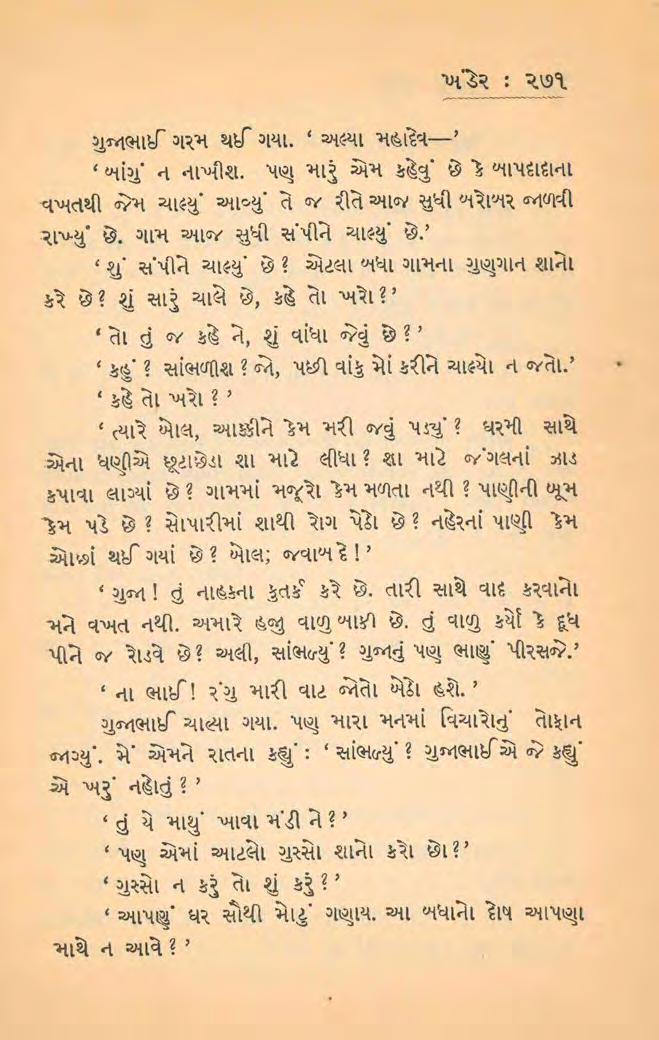 ખંડેર : ૨૭૧
ગુજાભાઈ ગરમ થઈ ગયા. ‘ અલ્યા મહાદેવ—’
‘ બાંગું ન નાખીશ. પણ મારું એમ કહેવું છે કે બાપદાદાના
વખતથી જેમ ચાલ્યું આવ્યું તે જ રીતે આજ સુધી બરાબર જાળવી
રાખ્યું છે. ગામ આજ સુધી સંપીને ચાલ્યું છે.’
‘ શું સંપીને ચાલ્યું છે? એટલા બધા ગામના ગુણગાન શાનો
કરે છે? શું સારું ચાલે છે, કહે તો ખરો?’
‘ તો તું જ કહે ને, શું વાંધા જેવું છે?’
‘ કહું ? સાંભળીશ ? જો, પછી વાંકુ મોં કરીને ચાલ્યો ન જતો.’
‘ કહે તો ખરો ? ’
‘ ત્યારે બોલ, આક્કીને કેમ મરી જવું પડ્યું ? ધરમી સાથે
એના ધણીએ છૂટાછેડા શા માટે લીધા ? શા માટે જંગલનાં ઝાડ
કપાવા લાગ્યાં છે ? ગામમાં મજૂરો કેમ મળતા નથી ? પાણીની બૂમ
કેમ પડે છે ? સોપારીમાં શાથી રોગ પેઠો છે ? નહેરનાં પાણી કેમ
ઓછાં થઈ ગયાં છે ? બોલ; જવાબ દે !’
‘ ગુજા ! તું નાહકના કુતર્ક કરે છે. તારી સાથે વાદ કરવાનો
મને વખત નથી. અમારે હજુ વાળુ બાકી છે. તું વાળુ કર્યો કે દૂધ
પીને જ રોડવે છે? અલી, સાંભળ્યું ? ગુજાનું પણ ભાણું પીરસજે.’
‘ ના ભાઈ ! રંગુ મારી વાટ જોતો બેઠો હશે. ’
ગુજાભાઈ ચાલ્યા ગયા. પણ મારા મનમાં વિચારોનું તોફાન
જાગ્યું. મેં એમને રાતના કહ્યું : ‘ સાંભળ્યું ? ગુજાભાઈએ જે કહ્યું
એ ખરું નહોતું ? ’
‘ તું યે માથું ખાવા મંડી ને ? ’
‘ પણ એમાં આટલો ગુસ્સો શાનો કરો છો ?’
‘ ગુસ્સો ન કરું તો શું કરું ? ’
‘ આપણું ઘર સૌથી મોટું ગણાય. આ બધાનો દોષ આપણા
માથે ન આવે ? ’